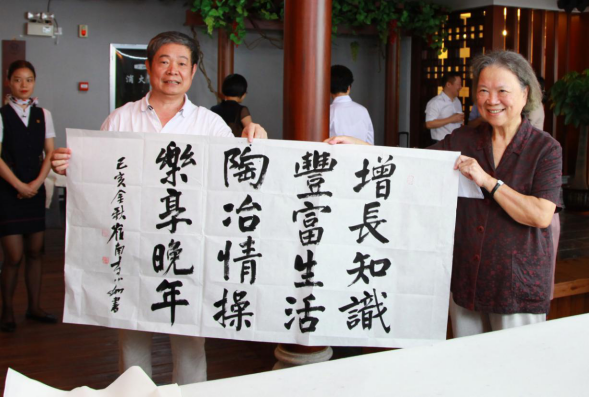 增長知識
豐富生活
陶冶情操
樂享晚年
己亥金秋
書